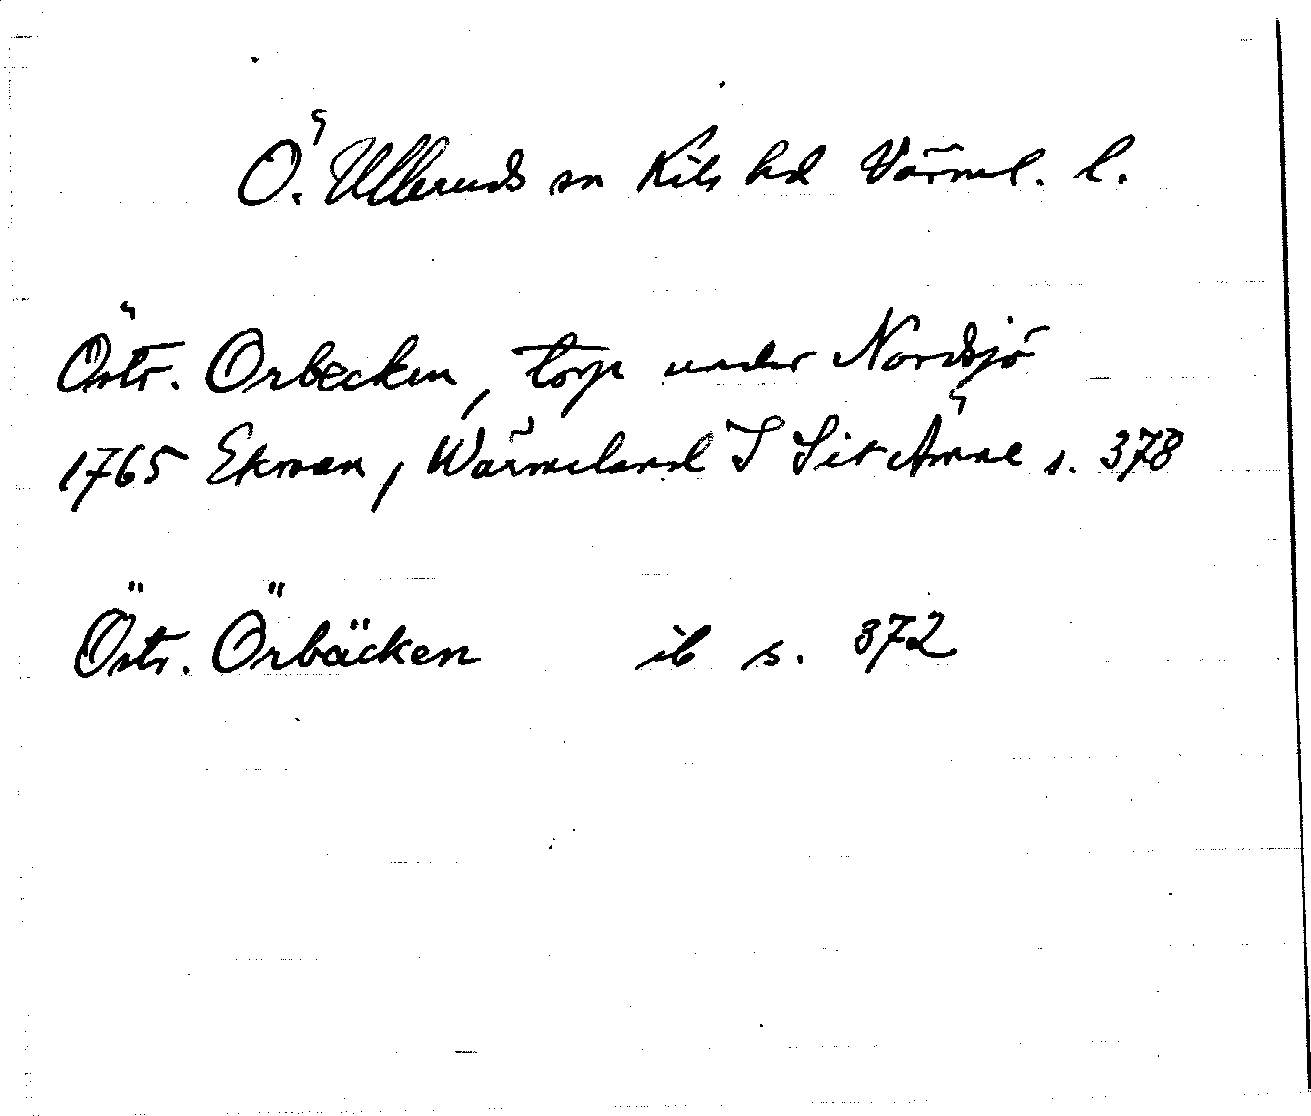 Ö. Ulleruds sn Kils hd Värml. l.
Östr. Orbecken, torp under Nordsjö
1765 Ekman, Wärmeland I Sit Ämne s. 378
Östr. Örbäcken ib s. 372